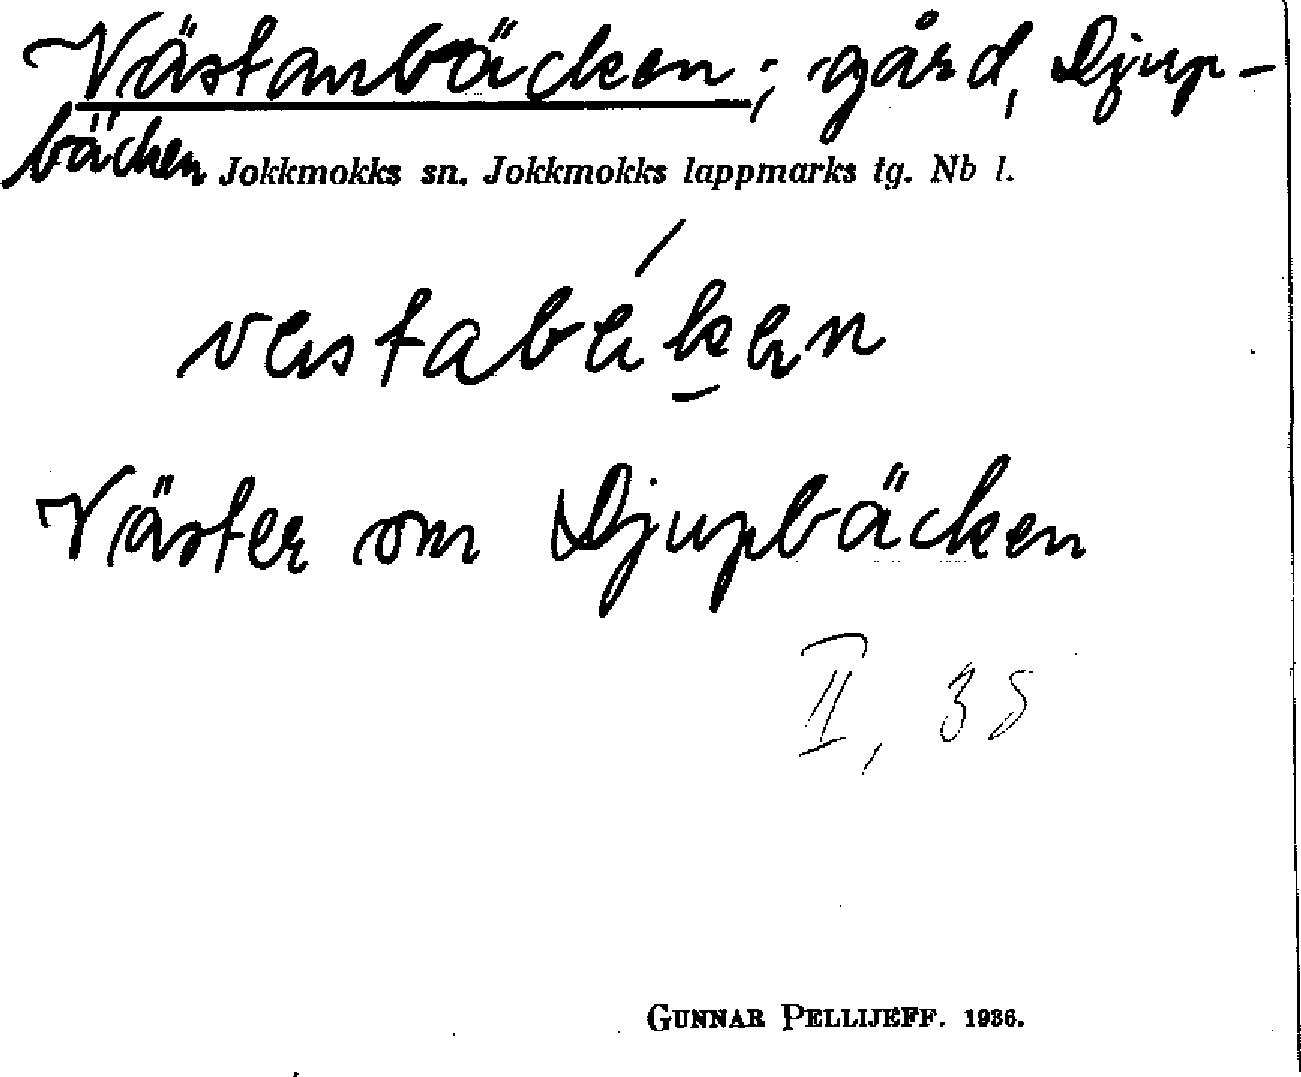 Västanbäcken; gård, Djup-
bäcken Jokkmokks sn. Jokkmokks lappmarks tg. Nb l.
Väster om Djupbäcken
II, 35
GUNNAR PELLIJEFF. 1936.